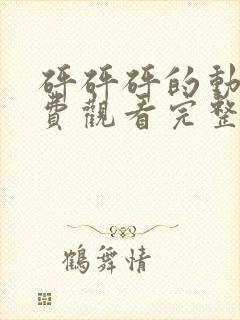 砰砰砰的動
費觀看完整
鶴舞情